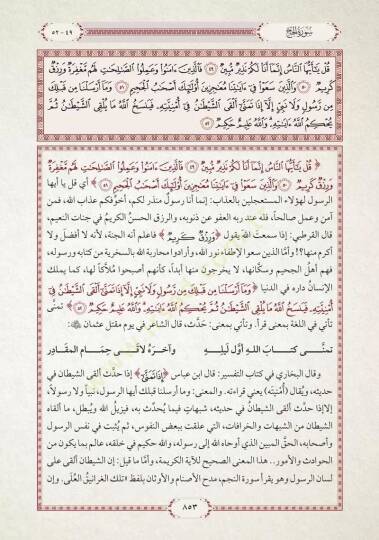 سورة الحج ٤٩ - ٥٢
قُلْ يَـٰٓأَيُّهَا ٱلنَّاسُ إِنَّمَآ أَنَا۠ لَكُمْ نَذِيرٌ مُّبِينٌ ﴿٤٩﴾ فَٱلَّذِينَ ءَامَنُوا۟ وَعَمِلُوا۟ ٱلصَّـٰلِحَـٰتِ لَهُم مَّغْفِرَةٌ وَرِزْقٌ
كَرِيمٌ ﴿٥٠﴾ وَٱلَّذِينَ سَعَوْا۟ فِىٓ ءَايَـٰتِنَا مُعَـٰجِزِينَ أُو۟لَـٰٓئِكَ أَصْحَـٰبُ ٱلْجَحِيمِ ﴿٥١﴾ وَمَآ أَرْسَلْنَا مِن قَبْلِكَ
مِن رَّسُولٍ وَلَا نَبِىٍّ إِلَّآ إِذَا تَمَنَّىٰٓ أَلْقَى ٱلشَّيْطَـٰنُ فِىٓ أُمْنِيَّتِهِۦ فَيَنسَخُ ٱللَّهُ مَا يُلْقِى ٱلشَّيْطَـٰنُ ثُمَّ
يُحْكِمُ ٱللَّهُ ءَايَـٰتِهِۦ وَٱللَّهُ عَلِيمٌ حَكِيمٌ ﴿٥٢﴾
﴿قُلْ يَـٰٓأَيُّهَا ٱلنَّاسُ إِنَّمَآ أَنَا۠ لَكُمْ نَذِيرٌ مُّبِينٌ ﴿٤٩﴾ فَٱلَّذِينَ ءَامَنُوا۟ وَعَمِلُوا۟ ٱلصَّـٰلِحَـٰتِ لَهُم مَّغْفِرَةٌ
وَرِزْقٌ كَرِيمٌ ﴿٥٠﴾ وَٱلَّذِينَ سَعَوْا۟ فِىٓ ءَايَـٰتِنَا مُعَـٰجِزِينَ أُو۟لَـٰٓئِكَ أَصْحَـٰبُ ٱلْجَحِيمِ ﴿٥١﴾﴾ أي قل يا أيها
الرسول لهؤلاء المستعجلين بالعذاب: إنما أنا رسولٌ منذر لكم، أخوّفكم عذاب الله، فمن
آمن وعمل صالحاً، فله عند ربه العفو عن ذنوبه، والرزق الحسنُ الكريمُ في جنات النعيم،
قال القرطبي: إذا سمعتَ الله يقول ﴿وَرِزْقٌ كَرِيمٌ﴾ فاعلم أنه الجنة، لأنه لا أفضلَ ولا
أكرم منها؟!! وأمَّا الذين سعوا لإطفاء نور الله، وأرادوا محاربة الله بالسخرية من كتابه ورسوله،
فهم أهلُ الجحيم وسكّانها، لا يخرجون منها أبداً، كأنهم أصبحوا مُلَّاكاً لها، كما يملك
الإنسانُ داره في الدنيا ﴿وَمَآ أَرْسَلْنَا مِن قَبْلِكَ مِن رَّسُولٍ وَلَا نَبِىٍّ إِلَّآ إِذَا تَمَنَّىٰٓ أَلْقَى ٱلشَّيْطَـٰنُ فِىٓ
أُمْنِيَّتِهِۦ فَيَنسَخُ ٱللَّهُ مَا يُلْقِى ٱلشَّيْطَـٰنُ ثُمَّ يُحْكِمُ ٱللَّهُ ءَايَـٰتِهِۦ وَٱللَّهُ عَلِيمٌ حَكِيمٌ ﴿٥٢﴾﴾ تمنَّى
تأتي في اللغة بمعنى قرأ. وتأتي بمعنى: حَدَّث، قال الشاعر في يوم مقتل عثمان:
تمنَّى كتابَ اللهِ أوَّلَ ليلِهِ وآخرَهُ لاقَى حِمامَ المقَادِر
وقال البخاري في كتاب التفسير: قال ابن عباس ﴿إِذَا تَمَنَّىٰٓ﴾ إذا حدَّث ألقى الشيطان في
حديثه، ويُقال (أُمْنيَّته) يعني قراءته. والمعنى: وما أرسلنا قبلك أيها الرسول، نبياً ولا رسولاً،
إلا إذا حدَّث ألقى الشيطانُ في حديثه، شبهاتٍ فيما يُحدِّث به، فيزيلُ الله ويُبطل، ما ألقاه
الشيطان من الشبهات والخرافات، التي علقت ببعض النفوس، ثم يُثبت في نفس الرسول
وأصحابه، الحقَّ المبين الذي أوحاه الله إلى رسوله، والله حكيم في خلقه، عالم بما يكون من
الحوادث والأمور.. هذا المعنى الصحيح للآية الكريمة، وأمَّا ما قيل: إن الشيطان ألقى على
لسان الرسول وهو يقرأ سورة النجم، مدح الأصنام والأوثان بلفظ «تلك الغرانيقُ العُلى، وإن
٨٥٣